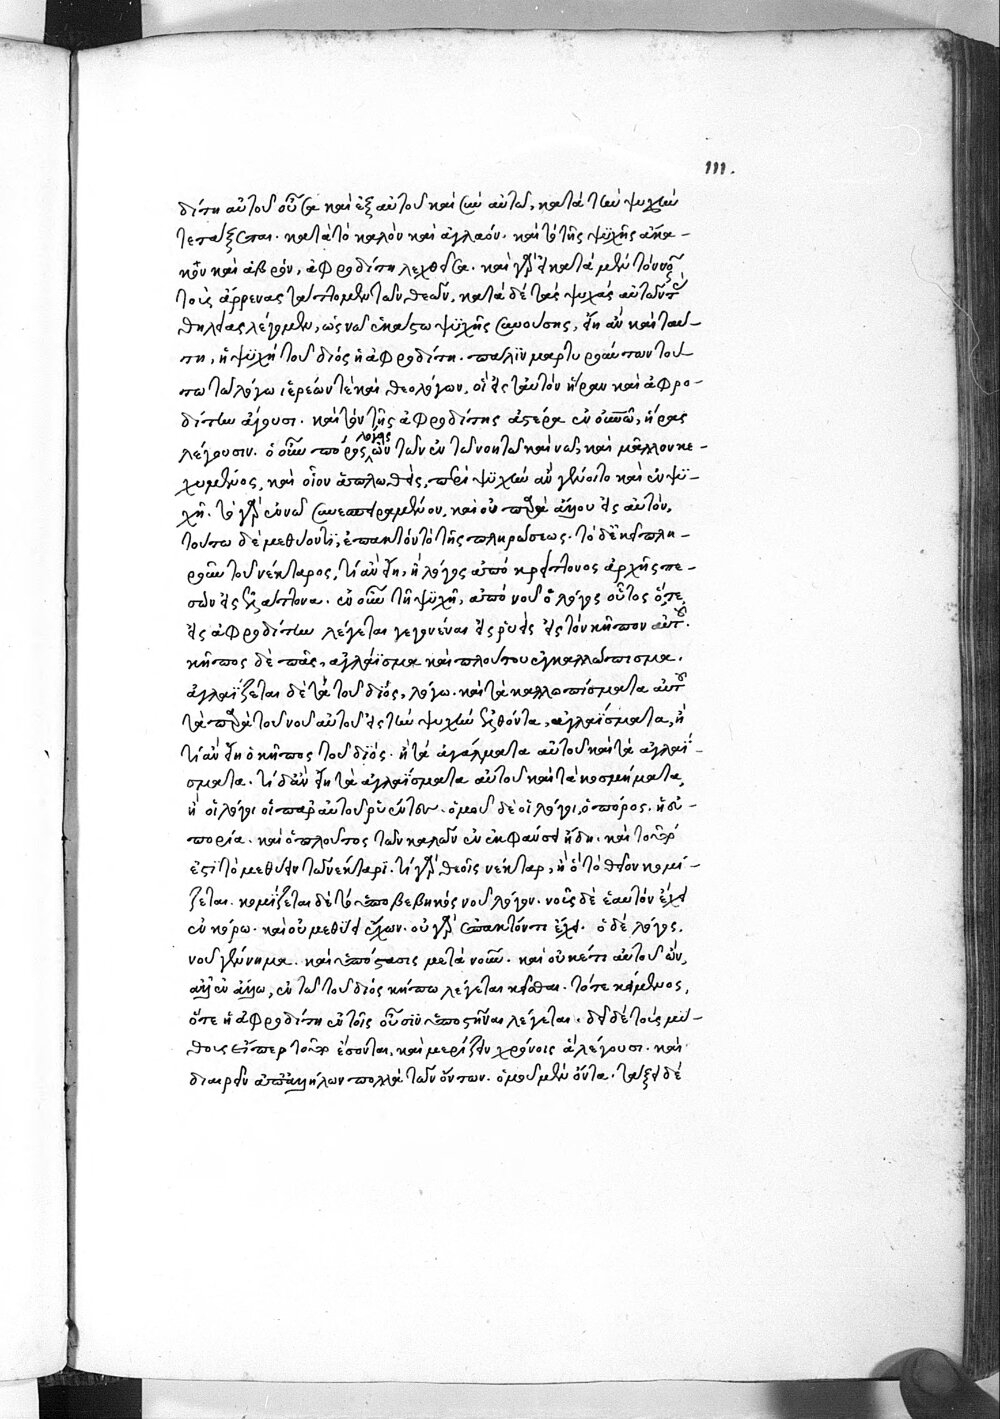 111.
δίτη αὐτοῦ οὖσα καὶ ἐξ αὐτοῦ καὶ σὺν αὐτῷ, κατὰ τὴν ψυχὴν
τετάξεται. κατὰ τὸ καλὸν καὶ ἀγλαόν. καὶ τὸ τῆς ψυχῆς ἄκα-
κον καὶ ἁβρόν, ἀφροδίτη λεχθεῖσα. καὶ γὰρ εἰ κατὰ μὲν τὸν νοῦν
τοὺς ἄρρενας τάττομεν τῶν θεῶν, κατὰ δὲ τὰς ψυχὰς αὐτῶν τὰς
θηλείας λέγομεν, ὡς νῷ ἑκάστῳ ψυχῆς συνούσης, εἴη ἂν καὶ ταύ-
τη, ἡ ψυχὴ τοῦ διὸς ἡ ἀφροδίτη. πάλιν μαρτυρούντων τού-
τῳ τῷ λόγῳ ἱερέων τε καὶ θεολόγων, οἳ εἰς ταὐτὸν ἥραν καὶ ἀφρο-
δίτην ἄγουσι. καὶ τὸν τῆς ἀφροδίτης ἀστέρα ἐν οὐρανῷ, ἥρας
λέγουσιν. ὁ οὖν πόρος λόγος ὢν τῶν ἐν τῷ νοητῷ καὶ νῷ, καὶ μᾶλλον κε-
χυμένος, καὶ οἷον ἁπλωθεὶς, περὶ ψυχὴν ἂν γένοιτο καὶ ἐν ψυ-
χῇ. τὸ γὰρ ἐν νῷ συνεσπειραμένον, καὶ οὐ παρὰ ἄλλου εἰς αὐτόν,
τούτῳ δὲ μεθύοντι, ἐπακτὸν τὸ τῆς πληρώσεως. τὸ δ' ἐκεῖ πλη-
ροῦν τοῦ νέκταρος, τί ἂν εἴη, ἢ λόγος ἀπὸ κρείττονος ἀρχῆς πε-
σὼν εἰς ἐλάττονα. ἐν οὖν τῇ ψυχῇ, ἀπὸ νοῦ ὁ λόγος οὗτος ὅτε
εἰς ἀφροδίτην λέγεται γεγονέναι εἰσρυεὶς εἰς τὸν κῆπον αὐτοῦ.
κῆπος δὲ πᾶς, ἀγλάϊσμα καὶ πλούτου ἐγκαλλώπισμα.
ἀγλαΐζεται δὲ τὰ τοῦ διός, λόγῳ. καὶ τὰ καλλωπίσματα αὐτοῦ
τὰ παρὰ τοῦ νοῦ αὐτοῦ εἰς τὴν ψυχὴν ἐλθόντα, ἀγλαΐσματα, ἢ
τί ἂν εἴη ὁ κῆπος τοῦ διός. ἢ τὰ ἀγάλματα αὐτοῦ καὶ τὰ ἀγλαΐ-
σματα. τί δ' ἂν εἴη τὰ ἀγλαΐσματα αὐτοῦ καὶ τὰ κοσμήματα,
ἢ οἱ λόγοι οἱ παρ' αὐτοῦ ῥυέντες. ὁμοῦ δὲ οἱ λόγοι, ὁ πόρος. ἡ εὐ-
πορία. καὶ ὁ πλοῦτος τῶν καλῶν ἐν ἐκφάνσει ἤδη. καὶ τοῦτό
ἐστι τὸ μεθύειν τῷ νέκταρι. τί γὰρ θεοῖς νέκταρ, ἢ ὃ τὸ θεῖον κομί-
ζεται. κομίζεται δὲ τὸ ὑποβεβηκὸς νοῦ λόγον. νοῦς δὲ ἑαυτὸν ἔχει
ἐν κόρῳ. καὶ οὐ μεθύει ἔχων. οὐ γὰρ ἐπακτόν τι ἔχει. ὁ δὲ λόγος,
νοῦ γέννημα. καὶ ὑπόστασις μετὰ νοῦν. καὶ οὐκέτι αὐτοῦ ὤν,
ἀλλ' ἐν ἄλλῳ, ἐν τῷ τοῦ διὸς κήπῳ λέγεται κεῖσθαι. τότε κείμενος,
ὅτε ἡ ἀφροδίτη ἐν τοῖς οὖσιν ὑποστῆναι λέγεται. δεῖ δὲ τοὺς μύ-
θους εἴπερ τοῦτο ἔσονται, καὶ μερίζειν χρόνοις ἃ λέγουσι. καὶ
διαιρεῖν ἀπ' ἀλλήλων πολλὰ τῶν ὄντων. ὁμοῦ μὲν ὄντα. τάξει δὲ